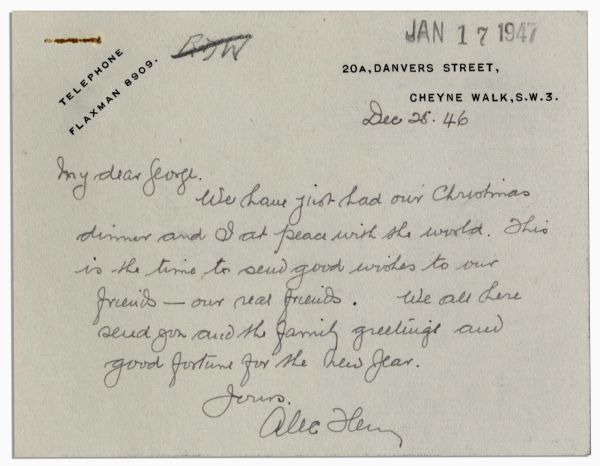 JAN 17 1947
TELEPHONE
FLAXMAN 8909.
20A, DANVERS STREET,
CHEYNE WALK, S.W.3.
Dec 28. 46
My dear George.
We have just had our Christmas
dinner and I at peace with the world. This
is the time to send good wishes to our
friends — our real friends. We all here
send you and the family greetings and
good fortune for the new Year.
Yours.
Alec